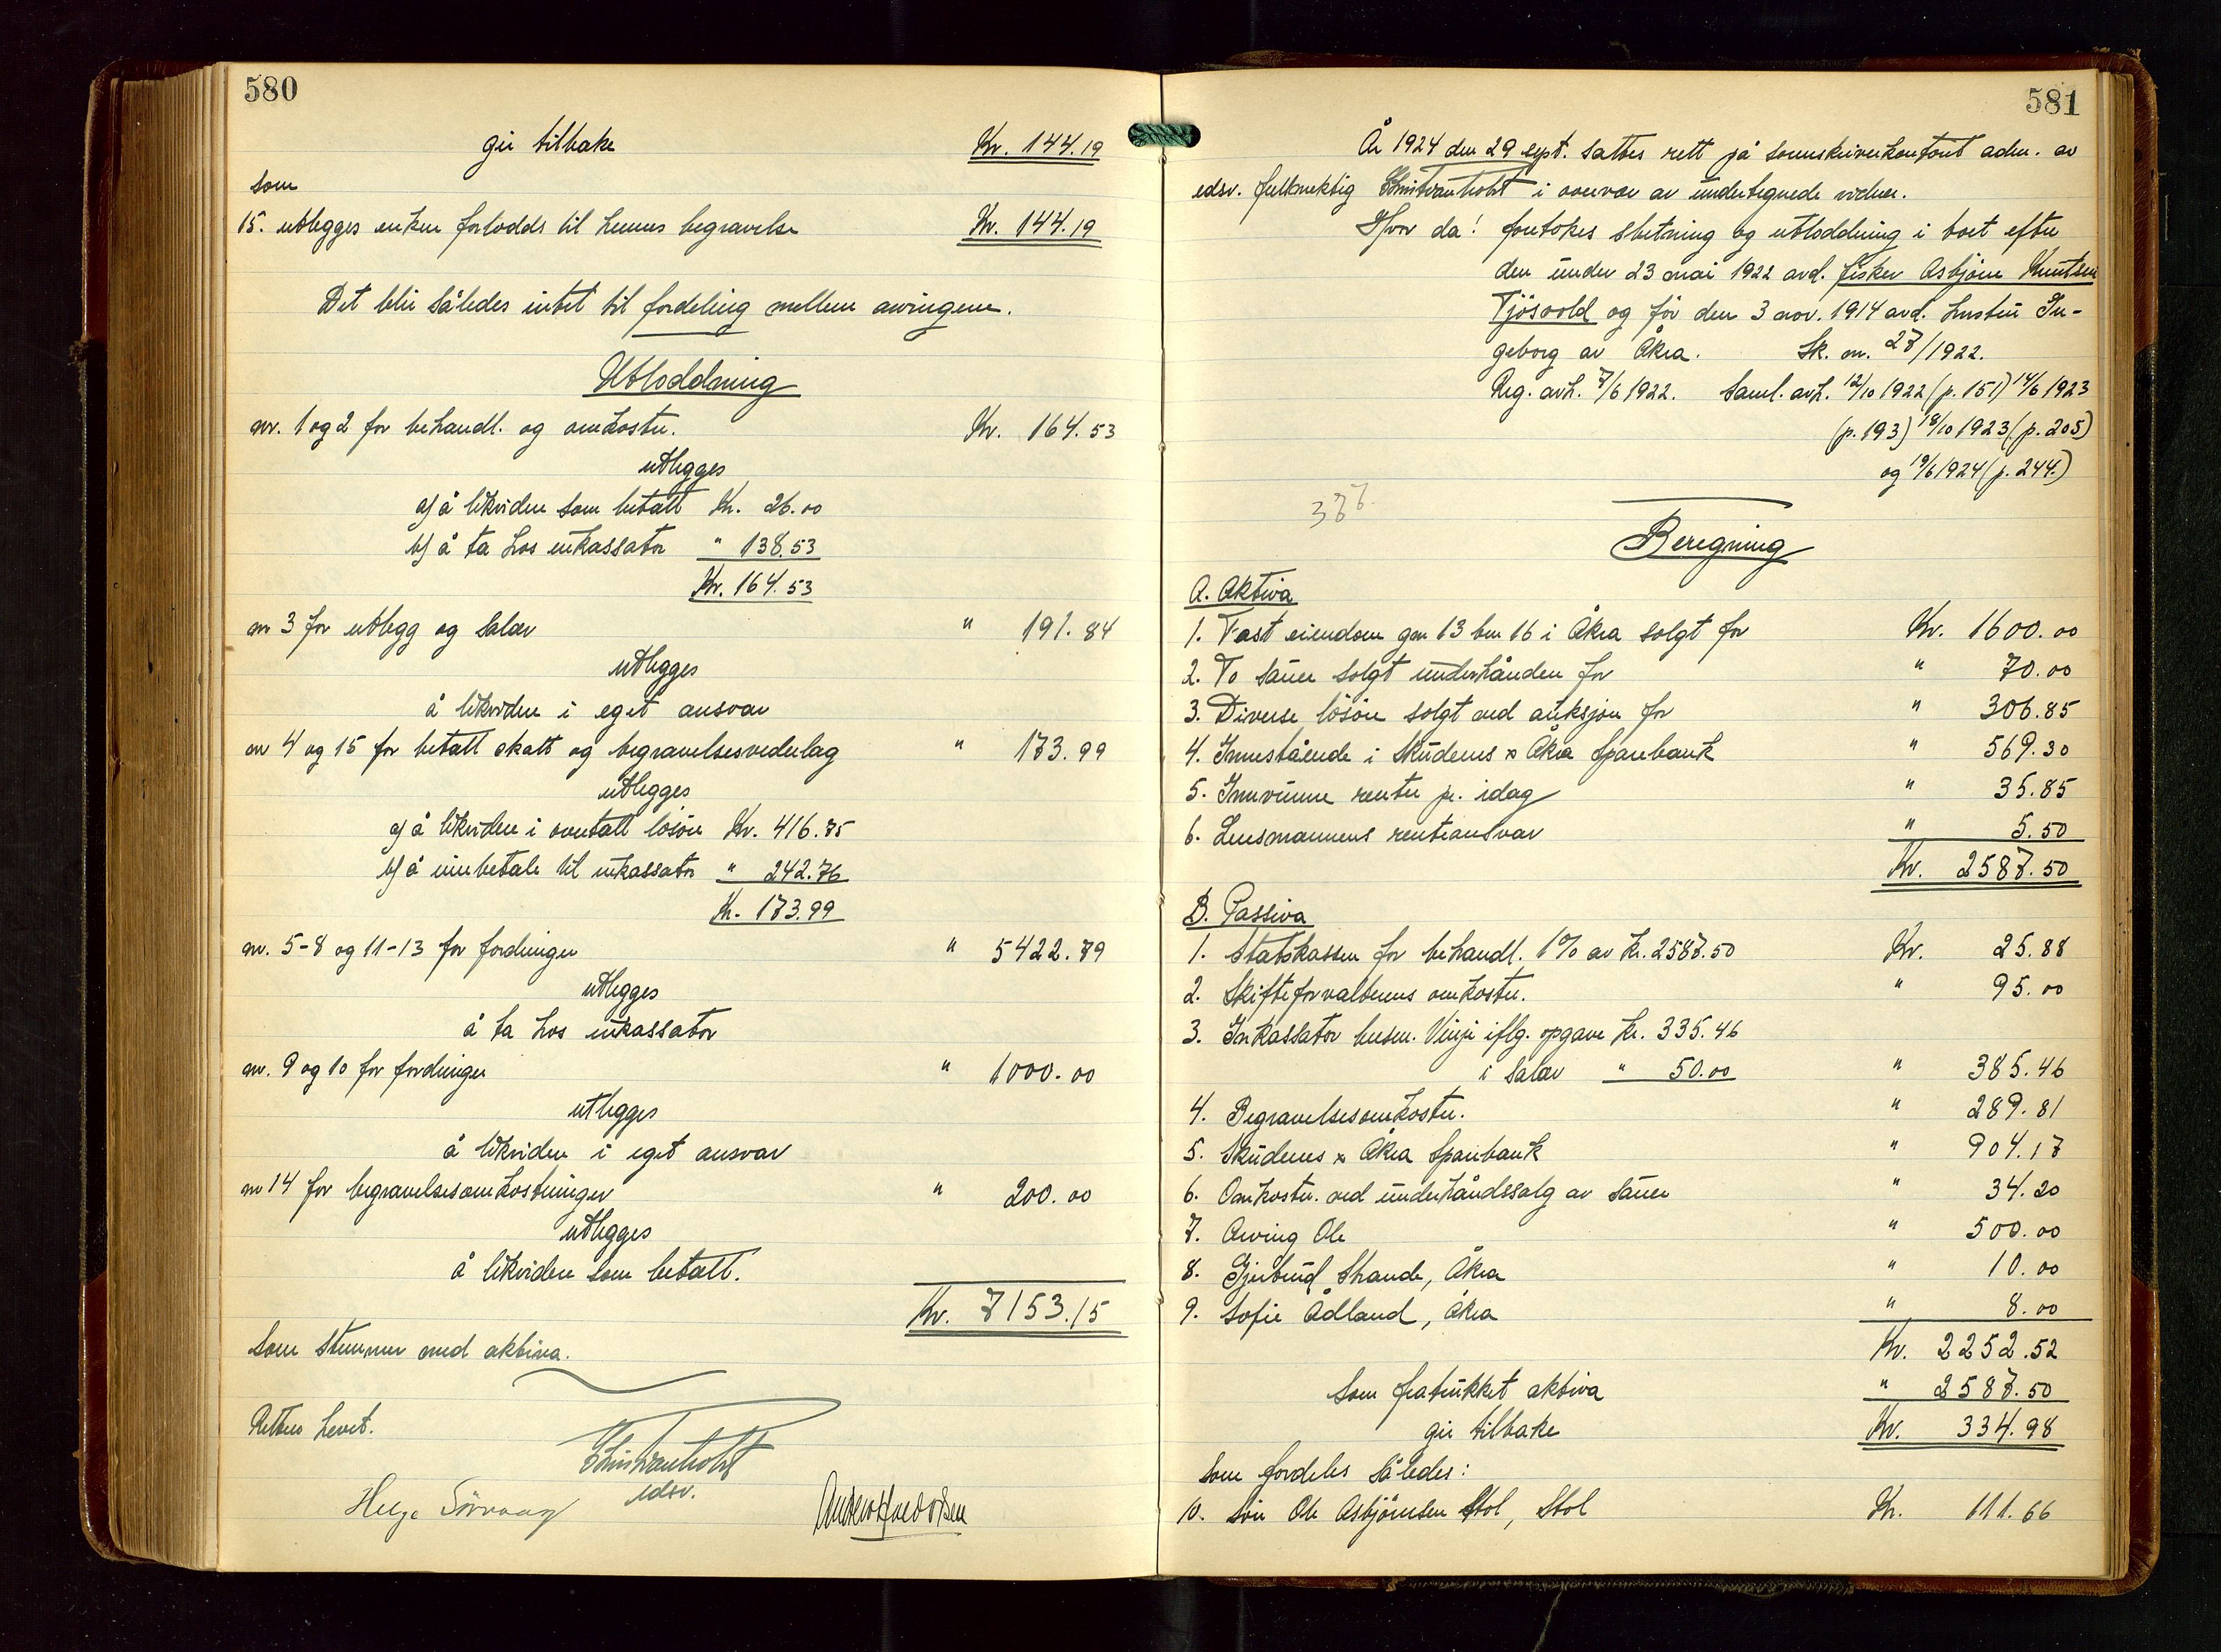 580
gir tilbake Kr. 144.19
som
15. utlegges enken forlodds til hennes begravelse Kr. 144.19
Det blir således intet til fordeling mellem arvingene.
Utloddning
nr. 1 og 2 for behandl. og omkostn. Kr. 164.53
utlegges
a) å likviden som betalt Kr. 26.00
b) å ta hos inkassator " 138.53
Kr. 164.53
nr 3 for utlegg og salær " 191.84
utlegges
å likviden i eget ansvar
nr 4 og 15 for betalt skatt og begravelsesvederlag " 173.99
utlegges
a) å likviden i overtatt løsøre Kr. 416.75
b) å innbetale til inkassator " 242.76
Kr. 173.99
nr. 5-8 og 11-13 for fordringer " 5422.79
utlegges
å ta hos inkassator
nr. 9 og 10 for fordringer " 1000.00
utlegges
å likviden i eget ansvar
nr 14 for begravelsesomkostninger " 200.00
utlegges
å likviden som betalt.
Kr. 7153.15
Som stemmer med aktiva.
Retten hevet.
edsv.
Helge
581
År 1924 den 29 sept. sattes rett på sorenskriverkontoret adm. av
edsv. fullmektig i overvær av undertegnede vidner.
Hvor da! foretokes slutning og utloddning i boet efter
den under 23 mai 1922 avd. fisker Asbjørn Knutsen
Tjøsvold og før den 3 nov. 1914 avd. hustru In-
geborg av Åkra. Sk. nr. 27/1922.
Reg. avh. 7/6 1922. Saml. avh. 12/10 1922 (p. 151) 14/6 1923
(p. 193) 18/10 1923 (p. 205)
og 19/6 1924 (p. 244.)
Beregning
A. Aktiva
1. Fast eiendom gnr 13 bnr 16 i Åkra solgt for Kr. 1600.00
2. To sauer solgt underhånden for " 70.00
3. Diverse løsøre solgt ved auksjon for " 306.85
4. Innestående i Skudenes & Åkra Sparebank " 569.30
5. Innvunne renter pr. idag " 35.85
6. Lensmannens renteansvar " 5.50
Kr. 2587.50
B. Passiva
1. Statskassen for behandl. 1% av Kr. 2587.50 Kr. 25.88
2. Skifteforvalterens omkostn. " 95.00
3. Inkassator lensm. Vinje iflg. opgave Kr. 335.46
i salær " 50.00 " 385.46
4. Begravelsesomkostn. " 289.81
5. Skudenes & Åkra Sparebank " 904.17
6. Omkostn. ved underhåndssalg av sauer " 34.20
7. Arving Ole " 500.00
8. Gjertrud Strande, Åkra " 10.00
9. Sofie Ådland, Åkra " 8.00
Kr. 2252.52
som fratrukket aktiva " 2587.50
gir tilbake Kr. 334.98
som fordeles således:
10. Søn Ole Asbjørnsen Stol, Stol Kr. 111.66